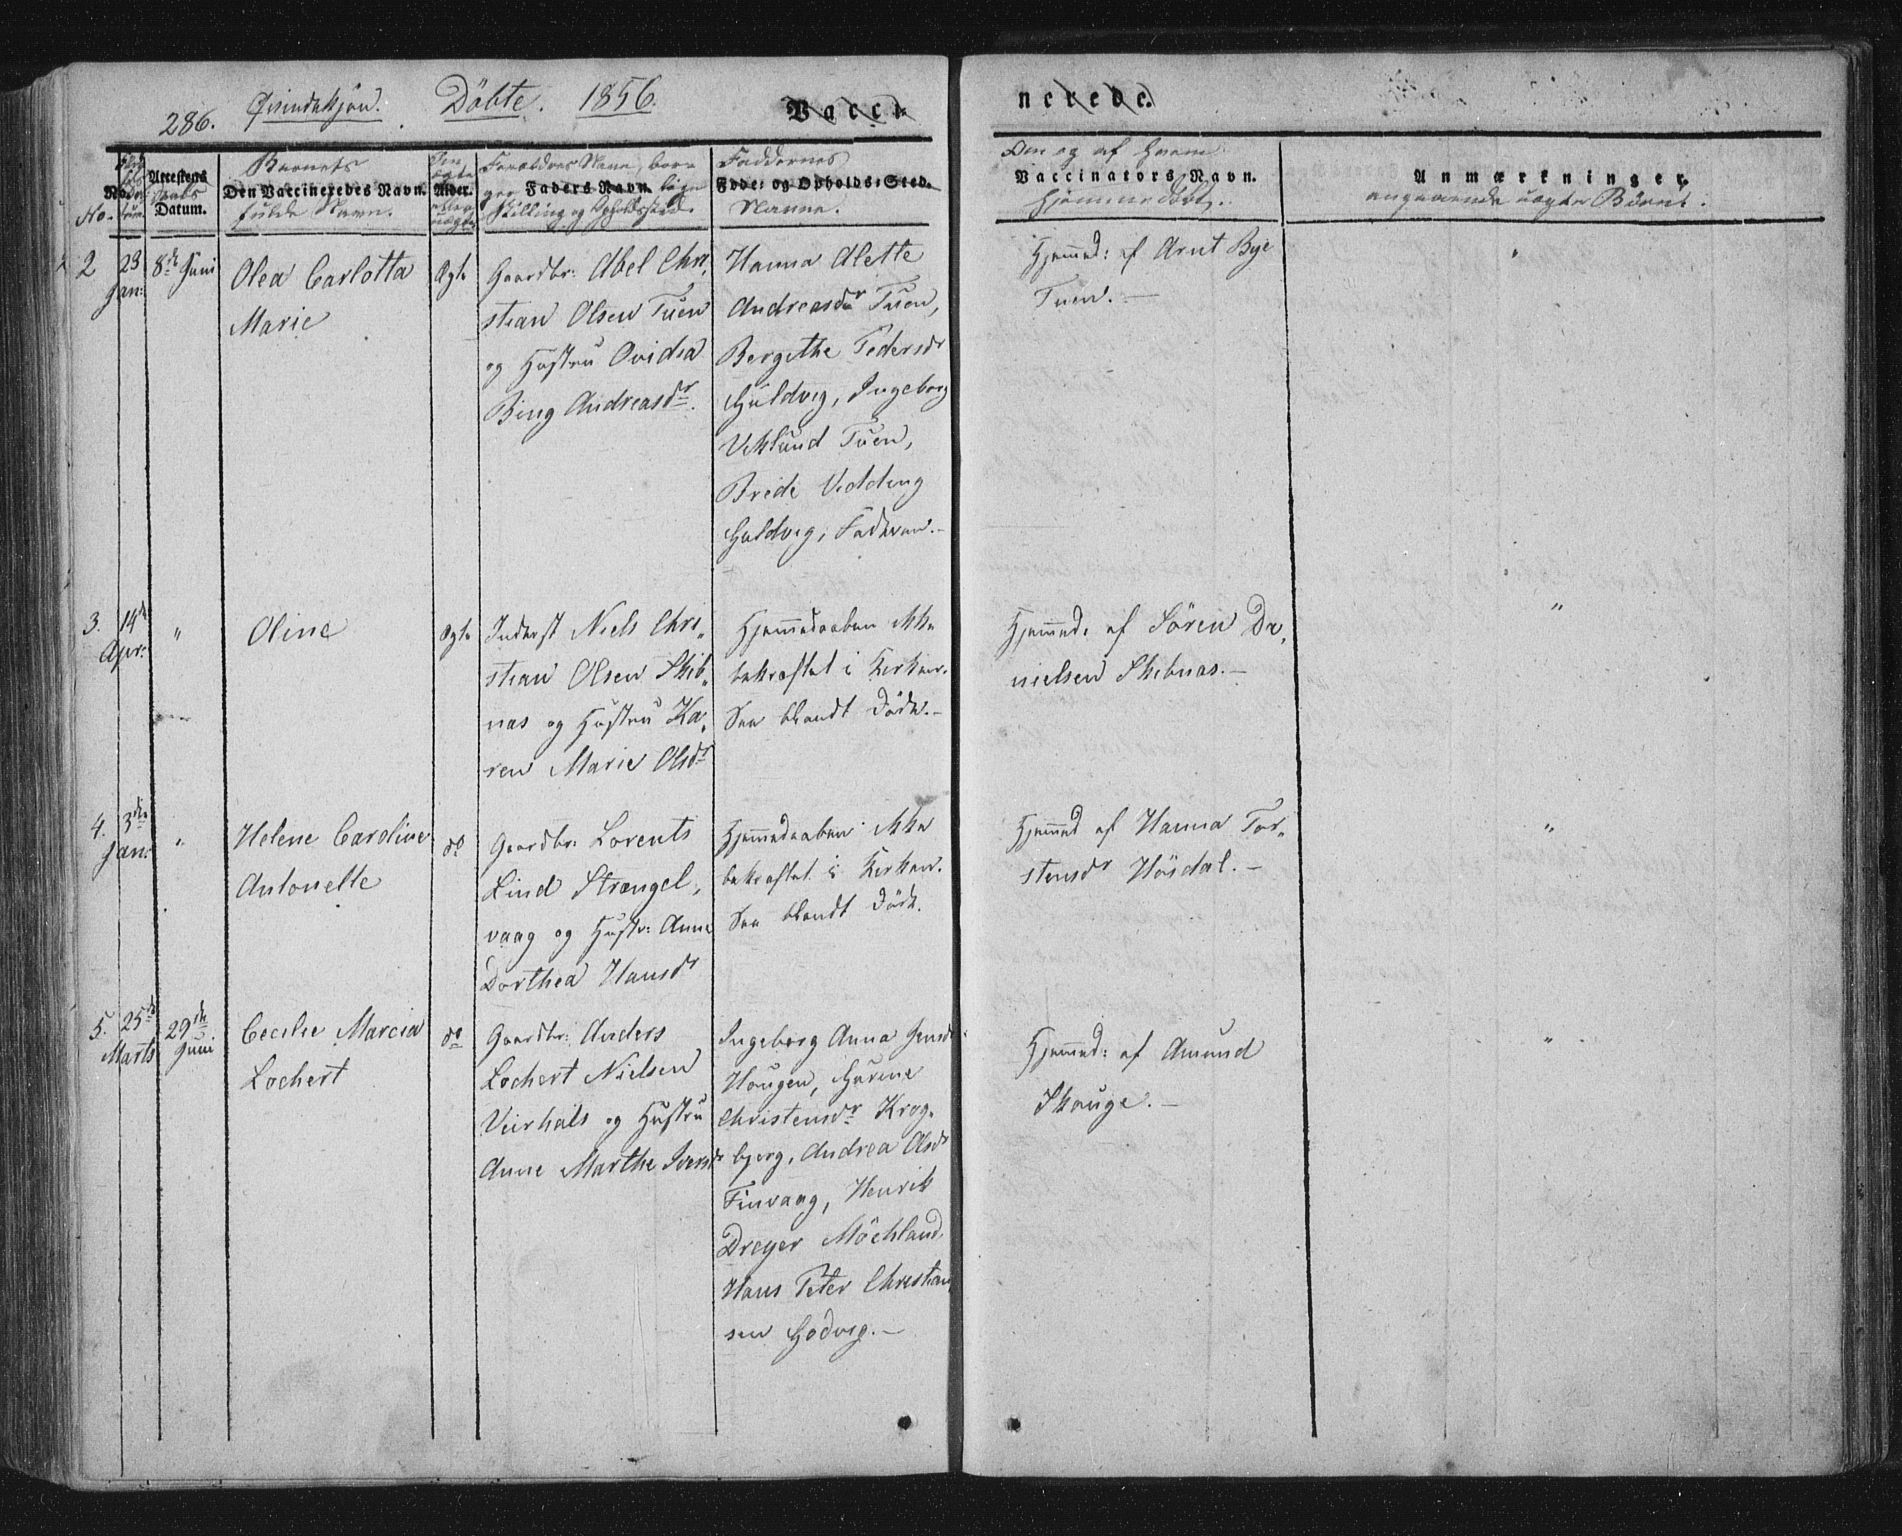 286. Qvindekjön. Döbte. 1856. Vacci-
nerede.
No. Attestens Datum. Den Vaccineredes Navn. Alder. Faders Navn. Føde- og Opholds-Sted.
Barnets fulde Navn.
Forældres Navn, borgerlige Stilling og Opholdssted.
Faddernes Navne.
Vaccinators Navn. Anmærkninger
Naar og af hvem Hjemmedöbt.
angaaende uægte Börn.
2 23 Jan: 8de Juni
Olea Carlotta
Marie
Ægte
Gaardbr: Abel Chri-
stian Olsen Tuen
og Hustru Ovidia
Bing Andreasdr.
Hanna Alette
Andreasdr Tuen,
Bergithe Pedersdr
Huldvig, Ingeborg
Viklund Tuen,
Brede Vedding
Huldvig, Faderen.-
Hjemmed: af Arnt Bye
Tuen. -
"
3. 14de Apr: "
Oline
Ægte
Inderst Niels Chri-
stian Olsen Skib-
nas og Hustru Ka-
ren Marie Olsdr
Hjemmedaaben ikke
bekræftet i Kirken.
See blandt Döde.-
Hjemmed. af Sören Da-
nielsen Skibnas. -
"
4. 3die Jan: "
Helene Caroline
Antonette
do
Gaardbr: Lorents
Lind Strengel-
vaag og Hustr: Anne
Dorthea Hansdr
Hjemmedaaben ikke
bekræftet i Kirken.
See blandt Döde.
Hjemmed af Hanna Tor-
stensdr Hösdal. -
"
5. 25de Marts 29de Juni
Cecilie Marcia
Lochert
do
Gaardbr: Anders
Lochert Nielsen
Veirhals og Hustru
Anne Marthe Iversdr
Ingeborg Anna Jensdr
Hougen, Hurine
Christensdr Krog-
bjerg, Andrea Olsdr
Finvaag, Henrik
Dreyer Möchland,
Hans Peter Christian-
sen Godvig. -
Hjemmed: af Amund
Skauge. -
"